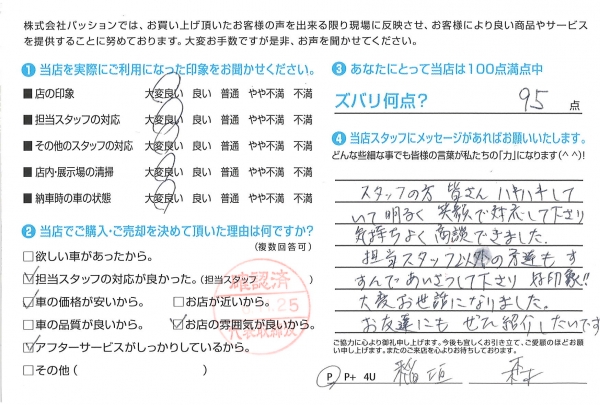 株式会社パッションでは、お買い上げ頂いたお客様の声を出来る限り現場に反映させ、お客様により良い商品やサービス
を提供することに努めております。大変お手数ですが是非、お声を聞かせてください。
❶ 当店を実際にご利用になった印象をお聞かせください。
■店の印象 大変良い 良い 普通 やや不満 不満
■担当スタッフの対応 大変良い 良い 普通 やや不満 不満
■その他のスタッフの対応 大変良い 良い 普通 やや不満 不満
■店内・展示場の清掃 大変良い 良い 普通 やや不満 不満
■納車時の車の状態 大変良い 良い 普通 やや不満 不満
❷ 当店でご購入・ご売却を決めて頂いた理由は何ですか?
(複数回答可)
□欲しい車があったから。
☑担当スタッフの対応が良かった。(担当スタッフ
☑車の価格が安いから。 □お店が近いから。
□車の品質が良いから。 ☑お店の雰囲気が良いから。
☑アフターサービスがしっかりしているから。
□その他 ( )
確認済
25
❸ あなたにとって当店は100点満点中
ズバリ何点? 95 点
❹ 当店スタッフにメッセージがあればお願いいたします。
どんな些細な事でも皆様の言葉が私たちの「力」になります(^^)!
スタッフの方 皆さん ハキハキして
いて 明るく 笑顔で対応して下さり
気持ちよく 商談できました.
担当スタッフ以外の方達も す
すんであいさつして下さり 好印象!!
大変お世話になりました。
お友達にも ぜひ 紹介したいです
ご協力に心より御礼申し上げます。今後も宜しくお引き立て、ご愛顧のほどお願
い申し上げます。またのご来店を心よりお待ちしております。
P P+ 4U 稲垣 森